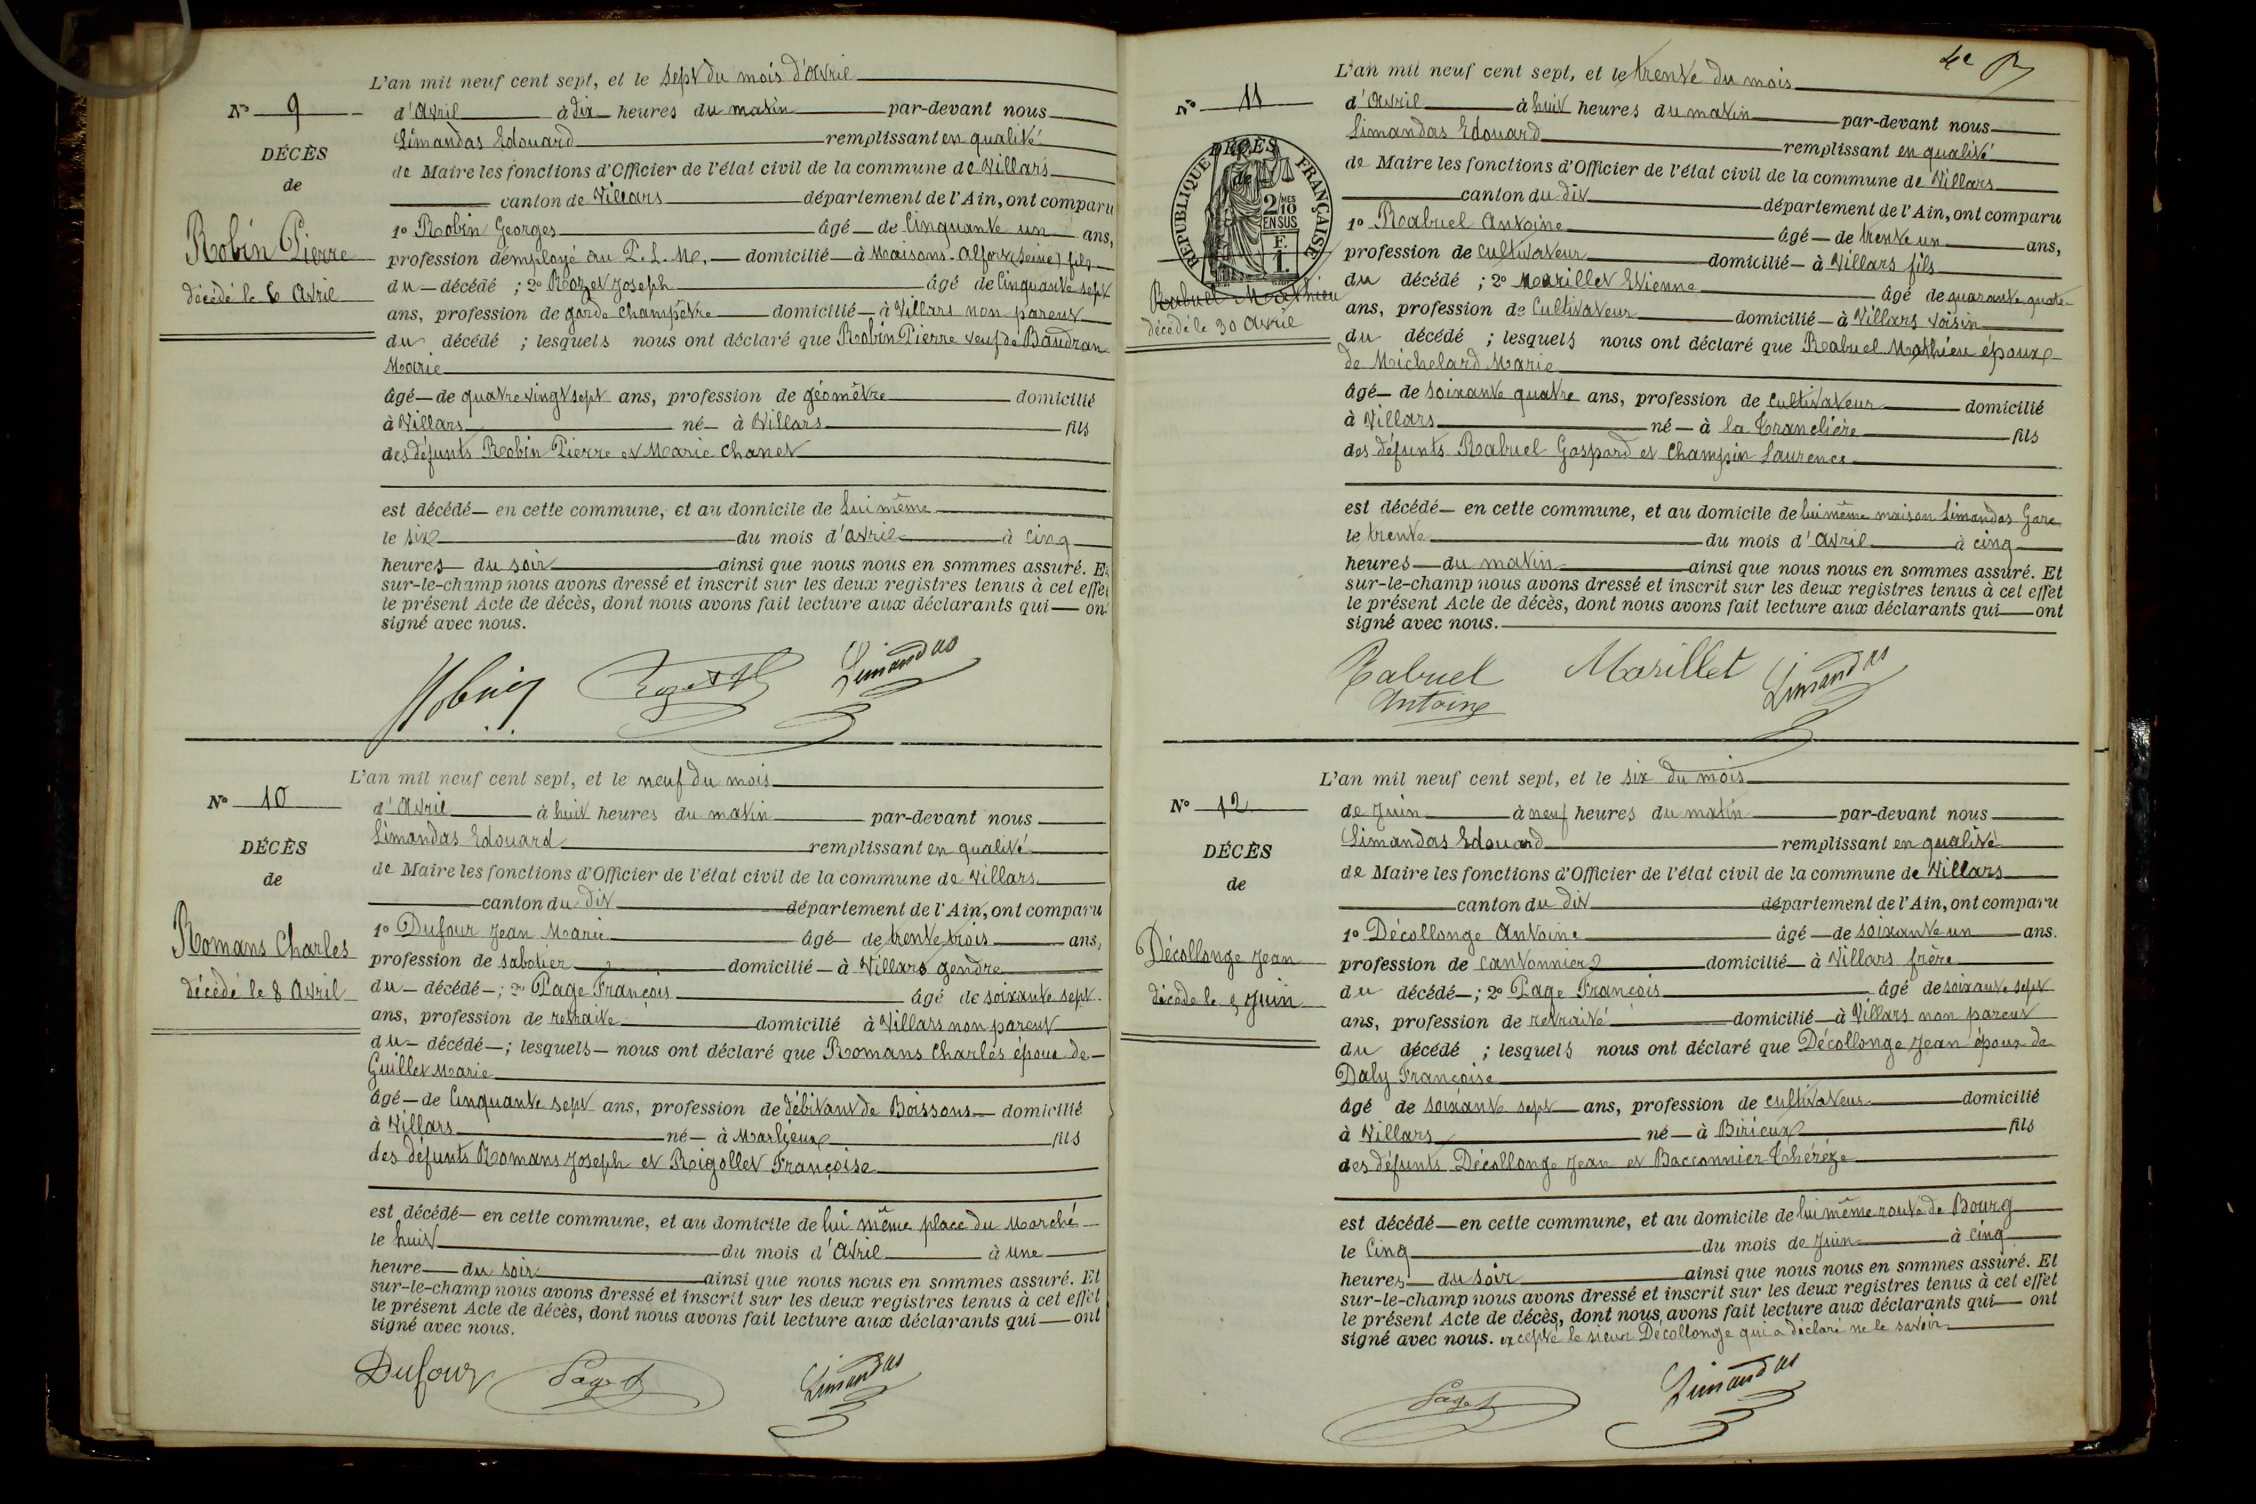 L'an mil neuf cent sept, et le sept du mois d'Avril
N° 9
d'Avril à dix heures du matin par-devant nous
Limandas Edouard remplissant en qualité
DÉCÈS
de Maire les fonctions d'Officier de l'état civil de la commune de Villars
de
canton de Villars département de l'Ain, ont comparu
1° Robin Georges âgé de Cinquante un ans,
Robin Pierre
profession d'employé au P. L. M. domicilié à Maisons-Alfort (Seine) fils
décédé le 6 Avril
du décédé ; 2° Rozet Joseph âgé de Cinquante sept
ans, profession de garde champêtre domicilié à Villars non parent
du décédé ; lesquels nous ont déclaré que Robin Pierre veuf de Baudran
Marie
âgé de quatre vingt sept ans, profession de géomètre domicilié
à Villars né à Villars fils
des défunts Robin Pierre et Marie Chanet
est décédé en cette commune, et au domicile de lui même
le six du mois d'avril à cinq
heures du soir ainsi que nous nous en sommes assuré. Et
sur-le-champ nous avons dressé et inscrit sur les deux registres tenus à cet effet
le présent Acte de décès, dont nous avons fait lecture aux déclarants qui ont
signé avec nous.
Robin Rozet Limandas
L'an mil neuf cent sept, et le neuf du mois
N° 10
d'Avril à huit heures du matin par-devant nous
Limandas Edouard remplissant en qualité
DÉCÈS
de Maire les fonctions d'Officier de l'état civil de la commune de Villars
de
canton du dit département de l'Ain, ont comparu
1° Dufour Jean Marie âgé de trente trois ans,
Romans Charles
profession de sabotier domicilié à Villars gendre
décédé le 8 Avril
du décédé ; 2° Page François âgé de soixante sept
ans, profession de retraité domicilié à Villars non parent
du décédé ; lesquels nous ont déclaré que Romans Charles époux de
Guillet Marie
âgé de Cinquante sept ans, profession de débitant de Boissons domicilié
à Villars né à Marlieux fils
des défunts Romans Joseph et Rigollet Françoise
est décédé en cette commune, et au domicile de lui même place du Marché
le huit du mois d'Avril à une
heure du soir ainsi que nous nous en sommes assuré. Et
sur-le-champ nous avons dressé et inscrit sur les deux registres tenus à cet effet
le présent Acte de décès, dont nous avons fait lecture aux déclarants qui ont
signé avec nous.
Dufour Page Limandas
4e
L'an mil neuf cent sept, et le trente du mois
N° 11
d'Avril à huit heures du matin par-devant nous
Limandas Edouard remplissant en qualité
DÉCÈS
RÉPUBLIQUE FRANÇAISE
de
2 MES 10 EN SUS
F. 1.
de Maire les fonctions d'Officier de l'état civil de la commune de Villars
canton du dit département de l'Ain, ont comparu
1° Rabuel Antoine âgé de trente un ans,
profession de cultivateur domicilié à Villars fils
Rabuel Mathieu
du décédé ; 2° Marillet Etienne âgé de quarante quatre
décédé le 30 Avril
ans, profession de Cultivateur domicilié à Villars voisin
du décédé ; lesquels nous ont déclaré que Rabuel Mathieu époux
de Michelard Marie
âgé de soixante quatre ans, profession de cultivateur domicilié
à Villars né à la Tranclière fils
des défunts Rabuel Gaspard et Champin Laurence
est décédé en cette commune, et au domicile de lui même maison Limandas Gare
le trente du mois d'Avril à cinq
heures du matin ainsi que nous nous en sommes assuré. Et
sur-le-champ nous avons dressé et inscrit sur les deux registres tenus à cet effet
le présent Acte de décès, dont nous avons fait lecture aux déclarants qui ont
signé avec nous.
Rabuel Marillet Limandas
Antoine
L'an mil neuf cent sept, et le six du mois
N° 12
de Juin à neuf heures du matin par-devant nous
Limandas Edouard remplissant en qualité
DÉCÈS
de Maire les fonctions d'Officier de l'état civil de la commune de Villars
de
canton du dit département de l'Ain, ont comparu
1° Décollonge Antoine âgé de soixante un ans.
Décollonge Jean
profession de cantonnier domicilié à Villars frère
décédé le 5 Juin
du décédé ; 2° Page François âgé de soixante sept
ans, profession de retraité domicilié à Villars non parent
du décédé ; lesquels nous ont déclaré que Décollonge Jean époux de
Daly Françoise
âgé de soixante sept ans, profession de cultivateur domicilié
à Villars né à Birieux fils
des défunts Décollonge Jean et Bacconnier Thérèze
est décédé en cette commune, et au domicile de lui même route de Bourg
le Cinq du mois de Juin à cinq
heures du soir ainsi que nous nous en sommes assuré. Et
sur-le-champ nous avons dressé et inscrit sur les deux registres tenus à cet effet
le présent Acte de décès, dont nous avons fait lecture aux déclarants qui ont
signé avec nous. excepté le sieur Décollonge qui a déclaré ne le savoir
Page Limandas